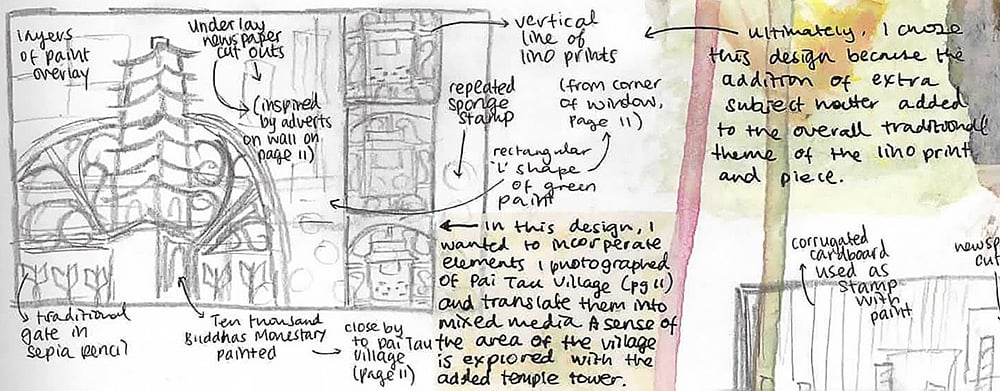 layers
of paint
overlay
underlay
newspaper
cut outs
(inspired
by adverts
on wall on
page 11)
vertical
line of
lino prints
(from corner
of window,
page 11)
repeated
sponge
stamp
rectangular
'L' shape
of green
paint
ultimately, I chose
this design because the
addition of extra
subject matter added
to the overall traditional
theme of the lino print
and piece.
In this design, I
wanted to incorperate
elements I photographed
of Pai Tau Village (pg 11)
and translate them into
mixed media. A sense of
the area of the village
is explored with the
added temple tower.
traditional
gate in
sepia pencil
Ten thousand
Buddhas Monestary
painted
close by
to Pai Tau
village
(page 11)
corrugated
cardboard
used as
stamp
with
paint